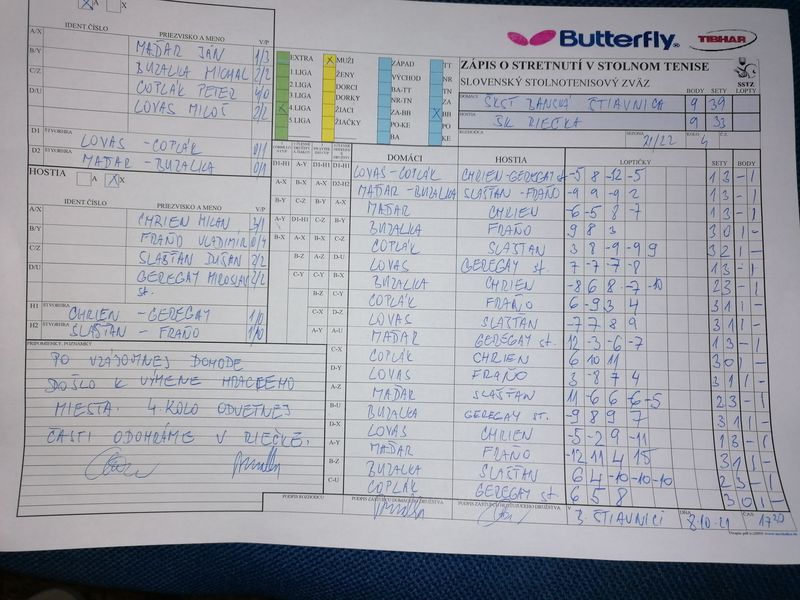 Butterfly TIBHAR
ZÁPIS O STRETNUTÍ V STOLNOM TENISE
SLOVENSKÝ STOLNOTENISOVÝ ZVÄZ
SSTZ
BODY SETY LOPTY
DOMÁCI ŠKST BANSKÁ ŠTIAVNICA 9 39
HOSTIA ŠK RIEČKA 9 33
ROZHODCA SEZÓNA 21/22 KOLO 4
A X
IDENT ČÍSLO PRIEZVISKO A MENO V/P
A/X MAĎAR JÁN 1/3
B/Y BUZALKA MICHAL 2/2
C/Z COPLÁK PETER 4/0
D/U LOVAS MILOŠ 2/2
D1 ŠTVORHRA LOVAS - COPLÁK 0/1
D2 ŠTVORHRA MAĎAR - BUZALKA 0/1
HOSTIA A X
IDENT ČÍSLO PRIEZVISKO A MENO V/P
A/X CHRIEN MILAN 3/1
B/Y FRAŇO VLADIMÍR 0/4
C/Z SLAŠŤAN DUŠAN 2/2
D/U GEREGAY MIROSLAV st. 2/2
H1 ŠTVORHRA CHRIEN - GEREGAY 1/0
H2 ŠTVORHRA SLAŠŤAN - FRAŇO 1/0
EXTRA MUŽI ZÁPAD TT
1.LIGA ŽENY VÝCHOD NR
2.LIGA DORCI BA-TT TN
3.LIGA DORKY NR-TN ZA
4.LIGA ŽIACI ZA-BB BB
5.LIGA ŽIAČKY PO-KE PO
BA KE
DOMÁCI HOSTIA LOPTIČKY SETY BODY
LOVAS - COPLÁK CHRIEN-GEREGAY st -5 8 -12 -5 1 3 - 1
MAĎAR - BUZALKA SLAŠŤAN - FRAŇO -9 9 -9 -2 1 3 - 1
MAĎAR CHRIEN -6 -5 8 -7 1 3 - 1
BUZALKA FRAŇO 9 8 3 3 0 1 -
COPLÁK SLAŠŤAN 3 8 -9 -9 9 3 2 1 -
LOVAS GEREGAY st. 7 -7 -7 -8 1 3 - 1
BUZALKA CHRIEN -8 6 8 -7 -10 2 3 - 1
COPLÁK FRAŇO 6 -9 3 4 3 1 1 -
LOVAS SLAŠŤAN -7 7 8 9 3 1 1 -
MAĎAR GEREGAY st. 12 -3 -6 -7 1 3 - 1
COPLÁK CHRIEN 6 10 11 3 0 1 -
LOVAS FRAŇO 3 -8 7 4 3 1 1 -
MAĎAR SLAŠŤAN 11 -6 6 -6 -5 2 3 - 1
BUZALKA GEREGAY st. -9 8 9 7 3 1 1 -
LOVAS CHRIEN -5 -2 9 -11 1 3 - 1
MAĎAR FRAŇO -12 11 4 15 3 1 1 -
BUZALKA SLAŠŤAN 6 4 -10 -10 -10 2 3 - 1
COPLÁK GEREGAY st 6 5 8 3 0 1 -
PRIPOMIENKY, POZNÁMKY
PO VZÁJOMNEJ DOHODE
DOŠLO K VÝMENE HRACIEHO
MIESTA. 4. KOLO ODVETNEJ
ČASTI ODOHRÁME V RIEČKE.
PODPIS ROZHODCU PODPIS ZÁSTUPCU DOMÁCEHO DRUŽSTVA PODPIS ZÁSTUPCU HOSŤUJÚCEHO DRUŽSTVA V B. ŠTIAVNICI DŇA 8.10.21 ČAS 17:30